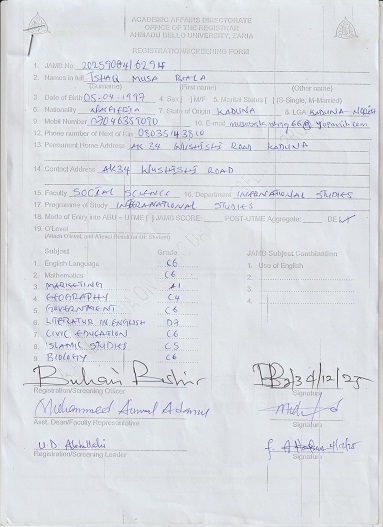 ACADEMIC AFFAIRS DIRECTORATE
OFFICE OF THE REGISTRAR
AHMADU BELLO UNIVERSITY, ZARIA
REGISTRATION/SCREENING FORM
1. JAMB No. 202590846291H
2. Names in full ISHAQ MUSA BALA
(Surname) (First name) (Other name)
3. Date of Birth 05-04-1997 4. Sex [ ] M/F 5. Marital Status [ ] (S-Single, M-Married)
6. Nationality NIGERIA 7. State of Origin KADUNA 8. LGA KADUNA NORTH
9. Mobil Number 09046357070 10. E-mail
12. Phone number of Next of Kin 08035143860
13. Permanent Home Address AK 34 WUSHISHI ROAD KADUNA
14. Contact Address AK34 WUSHISHI ROAD
15. Faculty SOCIAL SCIENCE 16. Department INTERNATIONAL STUDIES
17. Programme of Study INTERNATIONAL STUDIES
18. Mode of Entry into ABU - UTME [ ] JAMB SCORE: POST-UTME Aggregate: DE
19. O'Level
(Attach O'level, and A'level Result for DE Student)
Subject Grade JAMB Subject Combination
1. English Language C6 1. Use of English
2. Mathematics C6 2.
3 MARKETING A1 3.
4 GEOGRAPHY C4 4.
5 GOVERNMENT C6
6 LITERATUR IN ENGLISH D7
7 CIVIC EDUCATION C6
8 ISLAMIC STUDIES C5
9 BIOLOGY C6
Buhari Bashir 4/12/25
Registration/Screening Officer Signature
Muhammed Auwal Adamu
Asst. Dean/Faculty Representative Signature
U.D Abdullahi 4/12/25
Registration/Screening Leader Signature